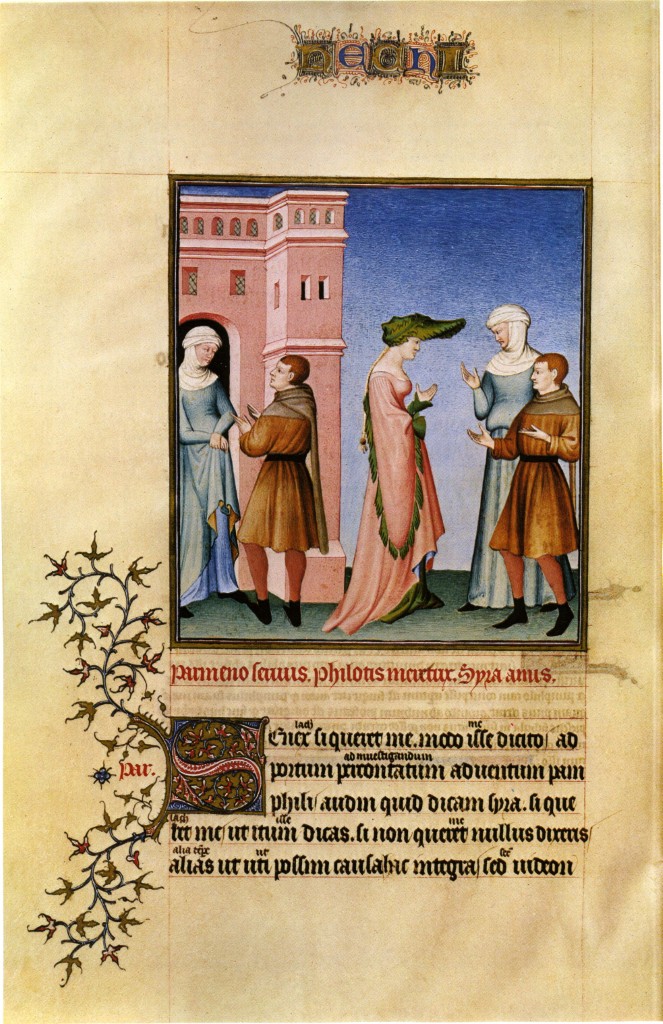 hEChI
Parmeno seruus. philotis meretrix. Syra anus.
lach me
Senex si queret me. modo isse dicito/ ad
ad inuestigandum
par. portum percontatum aduentum pam
phili/ audin quid dicam syra. si que
lach isse me
ret me/ ut itum dicas. si non queret nullus dixeris
alia ut
alias ut uti possim causa hac integra/ sed uideon